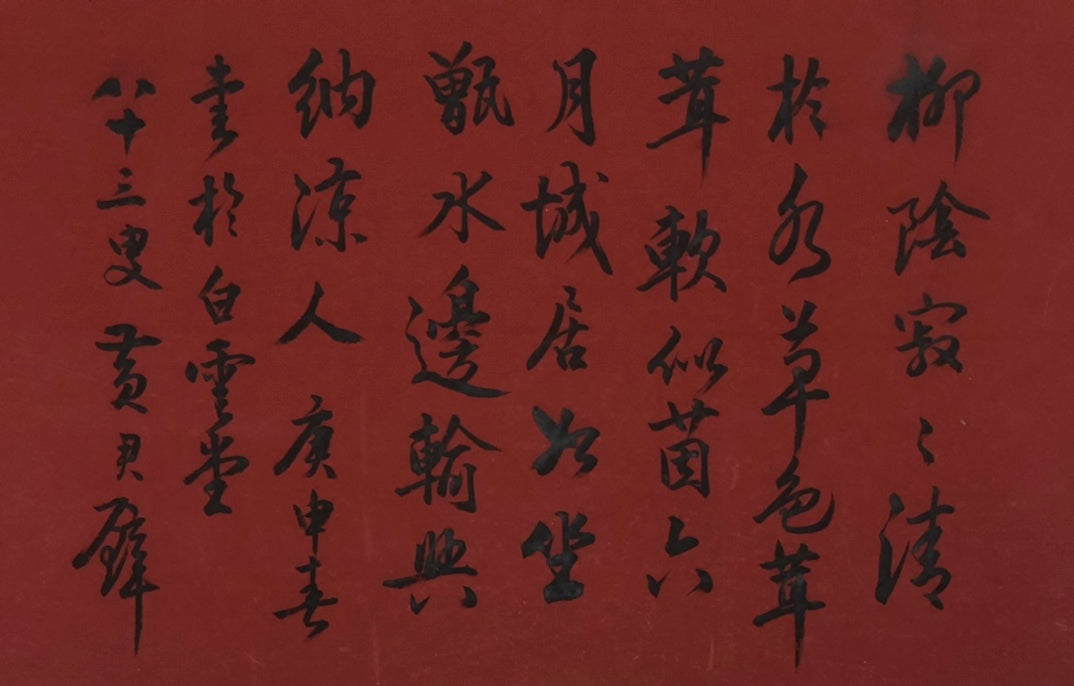 柳陰寂〻清
於水草色茸
茸軟似茵六
月城居如坐
甑水邊輸與
納涼人庚申春
畫於白雲堂
八十三叟黃君璧